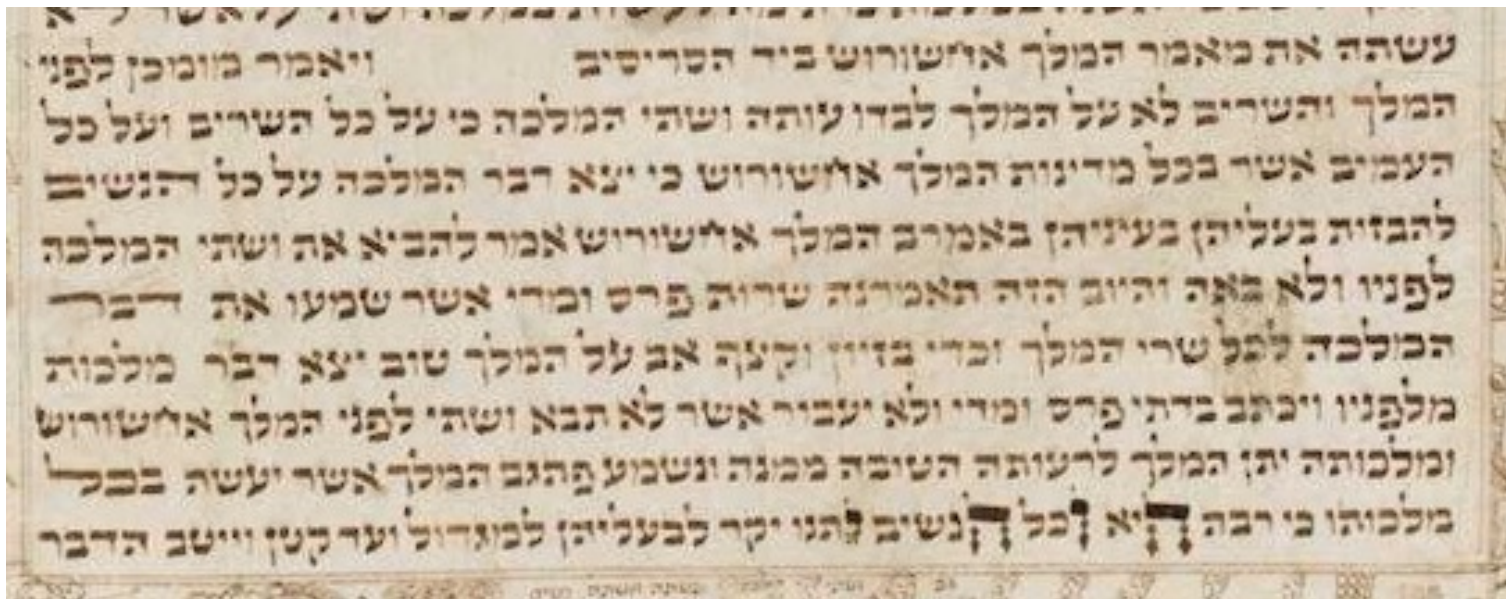 לעשות במלכה ושתי על אשר לא
עשתה את מאמר המלך אחשורוש ביד הסריסים ויאמר מומכן לפני
המלך והשרים לא על המלך לבדו עותה ושתי המלכה כי על כל השרים ועל כל
העמים אשר בכל מדינות המלך אחשורוש כי יצא דבר המלכה על כל הנשים
להבזות בעליהן בעיניהן באמרם המלך אחשורוש אמר להביא את ושתי המלכה
לפניו ולא באה והיום הזה תאמרנה שרות פרס ומדי אשר שמעו את דבר
המלכה לכל שרי המלך וכדי בזיון וקצף אם על המלך טוב יצא דבר מלכות
מלפניו ויכתב בדתי פרס ומדי ולא יעביר אשר לא תבא ושתי לפני המלך אחשורוש
ומלכותה יתן המלך לרעותה הטובה ממנה ונשמע פתגם המלך אשר יעשה בכל
מלכותו כי רבה היא וכל הנשים יתנו יקר לבעליהן למגדול ועד קטן וייטב הדבר